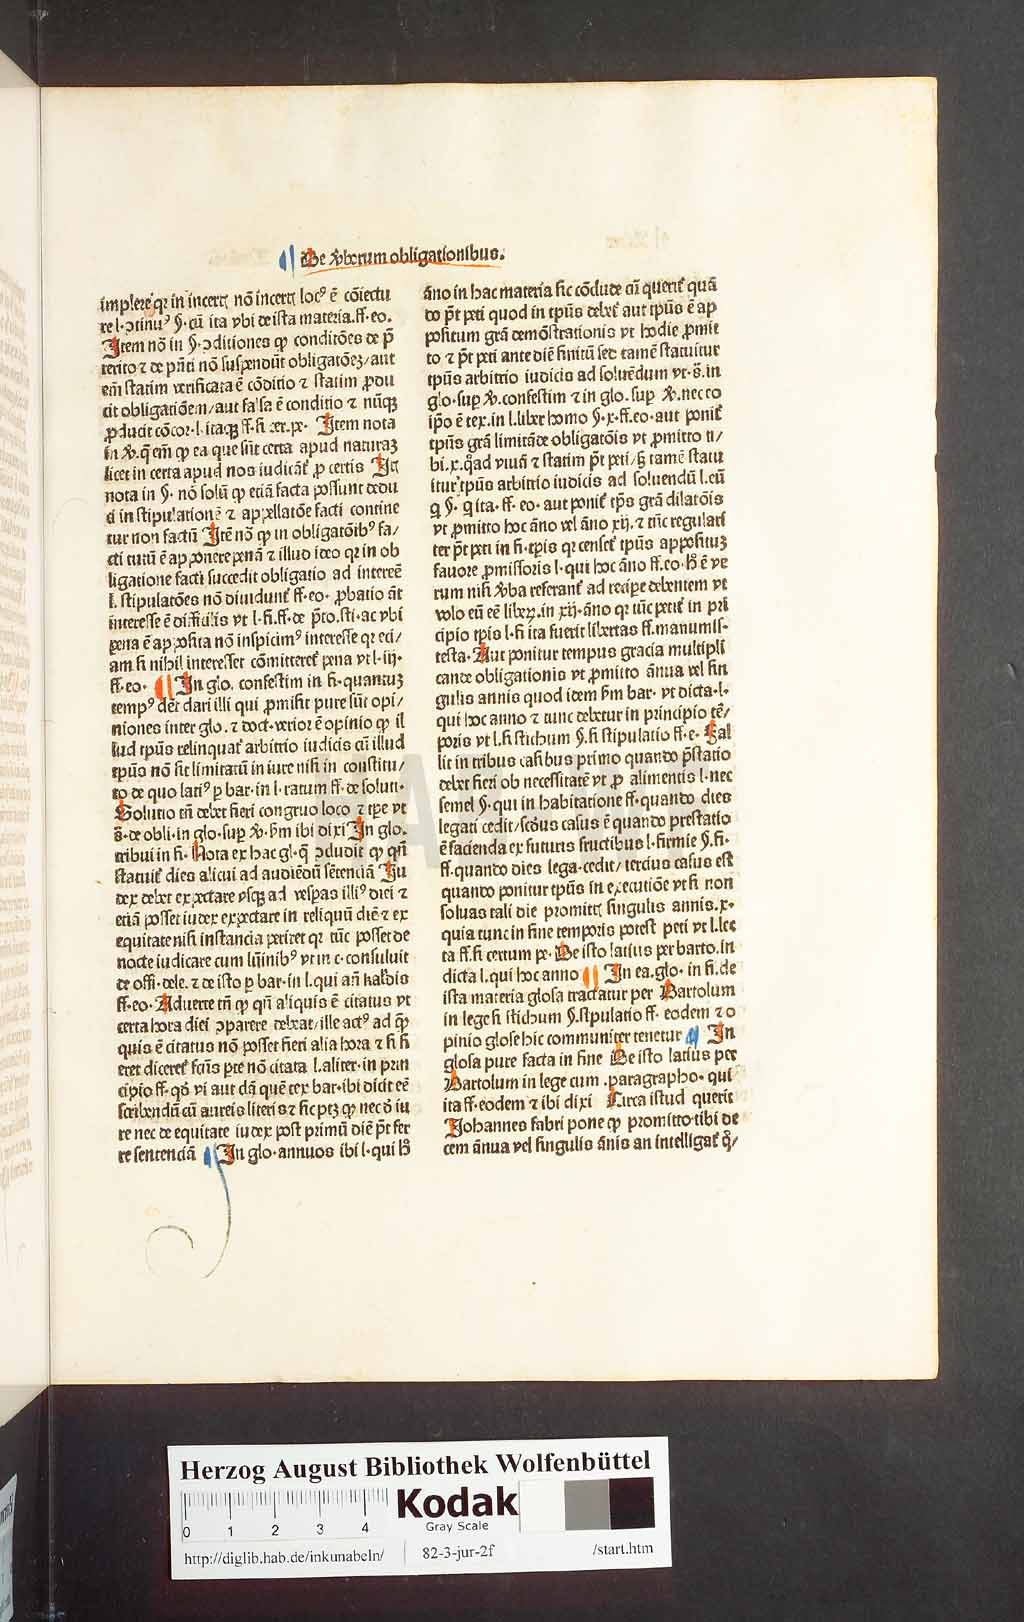 De v̓boꝝum obligationibus.
implere qꝛ in incertꝭ nõ incertꝭ locꝰ ẽ cõiectu
re l·ↄtinuꝰ §. cũ ita vbi de ista materia.ff.eo.
Item nõ in §·ↄditiones ꝙ conditões de p̃
terito ⁊ de p̃ñti nõ suspendũt obligatõeʒ/aut
em̃ statim verificata ẽ cõditio ⁊ statim ꝓdu
cit obligatiõem/aut falsa ẽ conditio ⁊ nũqꝫ
ꝓducit cõcoꝛ·l·itaqꝫ ff·si cer.pe· Item nota
in v̓.q̃em̃ ꝙ ea que sũt certa apud naturaʒ
licet in certa apud nos iudicãt̃ ꝓ certis Itẽ
nota in §· nõ solũ ꝙ etiã facta possunt dedu
ci in stipulationẽ ⁊ appellatõe facti contine
tur non factũ Itẽ nõ ꝙ in obligatõibꝰ fa/
cti tutũ ẽ apponere penã ⁊ illud ideo qꝛ in ob
ligatione facti succedit obligatio ad intereẽ
l. stipulatões nõ diuidunt̃ ff·eo· ꝓbatio añt
interesse ẽ difficilis vt l·fi.ff.de p̃to.sti·ac vbi
pena ẽ apposita nõ inspicimꝰ interesse qꝛ eci/
am si nihil interesset cõmitteret̃ pena vt l·iij·
ff·eo· In glo. confestim in fi·quantuʒ
tempꝰ det̃ dari illi qui ꝓmisit pure sũt opi/
niones inter glo.⁊ doct·verioꝛ ẽ opinio ꝙ il
lud tpũs relinquat̃ arbitrio iudicis cũ illud
tpũs nõ sit limitatũ in iure nisi in constitu/
to de quo latiꝰ ꝑ bar·in l·ratum ff·de soluti·
Solutio tñ debet fieri congruo loco ⁊ tꝑe vt
s̃·de obli·in glo·suꝑ v̓·hm̃ ibi dixi In glo.
tribui in fi· Nota ex hac gl·ꝙ ↄcludit ꝙ qñ
statuit̃ dies alicui ad audiẽdũ sentenciã Iu
dex debet expectare vsqꝫ ad vesꝑas illiꝰ diei ⁊
etiã posset iudex expectare in reliquũ diẽ ⁊ ex
equitate nisi instancia periret qꝛ tũc posset de
nocte iudicare cum lũinibꝰ vt in c·consuluit
de offi·dele.⁊ de isto ꝑ bar·in l.qui añ kalñdis
ff·eo· Aduerte tñ ꝙ qñ aliquis ẽ citatus vt
certa hoꝛa diei ↄparere debeat/ille actꝰ ad quẽ
quis ẽ citatus nõ posset fieri alia hoꝛa ⁊ si fi
eret diceret̃ factꝰ parte nõ citata l.aliter·in pꝛin
cipio ff·qd̓ vi aut clã quẽ tex bar·ibi dicit eẽ
scribendũ cũ aureis literis ⁊ sic ptʒ ꝙ nec d̓ iu
re nec de equitate iudex post pꝛimũ diẽ pt̃ fer
re sentenciã In glo·annuos ibi l·qui h̓
ãno in hac materia sic cõclude cũ querit̃ quã
do pt̃ peti quod in tpũs debet̃ aut tpũs ẽ ap
positum grã demõstrationis vt hodie ꝓmit
to ⁊ pt̃ peti ante diẽ finitũ sed tamẽ statuitur
tpũs arbitrio iudicis ad soluẽdum vt·s̃.in
glo·suꝑ v̓·confestim ⁊ in glo.suꝑ v̓.nec eo
ip̃o ẽ tex.in l.liber homo §·x·ff·eo·aut ponit̃
tpũs grã limitãde obligatõis vt ꝓmitto ti/
bi.x.q̃ad viuã ⁊ statim pt̃ peti/ꝫ tamẽ statu
itur tpũs arbitrio iudicis ad soluendũ l.eũ
q̃ §· q̃ ita· ff·eo·aut ponit̃ tp̃s grã dilatõis
vt ꝓmitto hoc ãno vel ãno xij.⁊ tũc regulari
ter pt̃ peti in fi·tꝑis qꝛ censet̃ tpũs appositũʒ
fauoꝛe ꝓmissoꝛis l·qui hoc ãno ff.eo·h̓ ẽ ve
rum nisi v̓ba referant̃ ad recipe debentem vt
volo eũ eẽ liberꝝ.in xij·ãno qꝛ tũc petit̃ in pꝛi
cipio tꝑis l·si ita fuerit libertas ff.manumis·
testa·Aut ponitur tempus gracia multipli
cande obligationis vt ꝓmitto ãnua vel sin
gulis annis quod idem hm̃ bar· vt dicta·l·
qui hoc anno ⁊ tunc debetur in principio tẽ/
poꝛis vt l·si stichum §.si stipulatio ff·e· Fal
lit in tribus casibus pꝛimo quando p̃statio
debet fieri ob necessitatẽ vt ꝓ alimentis l·nec
semel §·qui in habitatione ff·quando dies
legati cedit/scd̓us casus ẽ quando pꝛestatio
ẽ facienda ex futuris fructibus l·firmie §.fi·
ff.quando dies lega·cedit/tercius casus est
quando ponitur tpũs in executiõe vt si non
soluas tali die promittꝭ singulis annis.x·
quia tunc in fine tempoꝛis potest peti vt l.lec
ta ff.si certum pe· De isto latius per barto.in
dicta l.qui hoc anno In ea.glo·in fi.de
ista materia glosa tractatur per Bartolum
in lege si stichum §.stipulatio ff· eodem ⁊ o
pinio glose hic communiter tenetur In
glosa pure facta in fine De isto latius per
Bartolum in lege cum .paragrapho· qui
ita ff·eodem ⁊ ibi dixi Circa istud querit
Johannes fabri pone ꝙ promitto tibi de
cem ãnua vel singulis ãnis an intelligat̃ q̃/
Herzog August Bibliothek Wolfenbüttel
Kodak
Gray Scale
0 1 2 3 4
http://diglib.hab.de/inkunabeln/ 82-3-jur-2f /start.htm